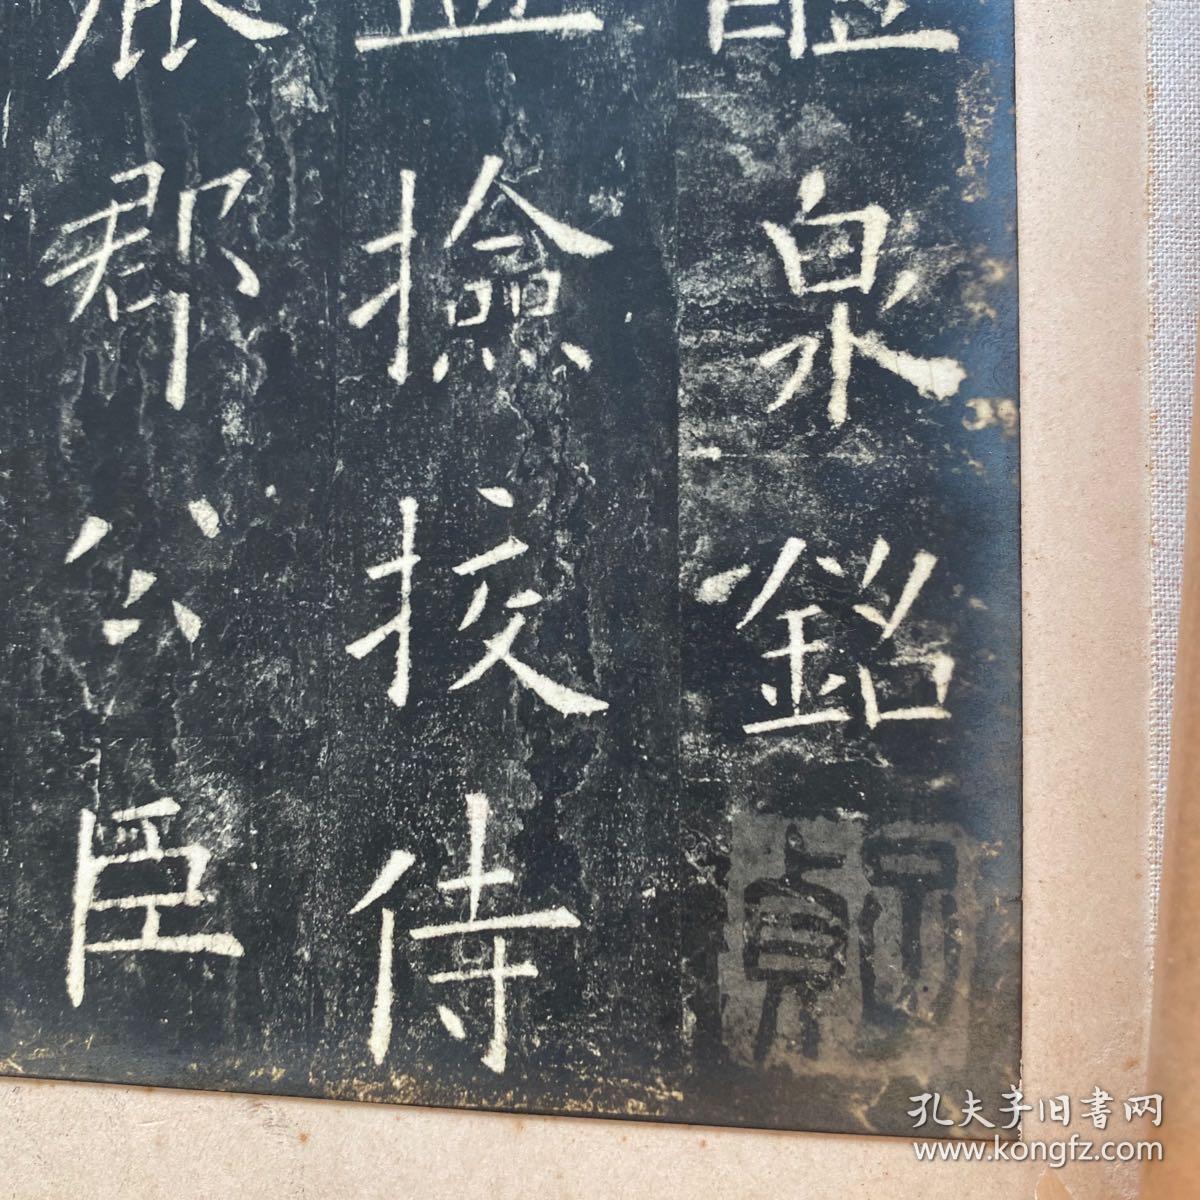 醴泉銘
監撿挍侍
鹿郡公臣
孔夫子旧書网
www.kongfz.com